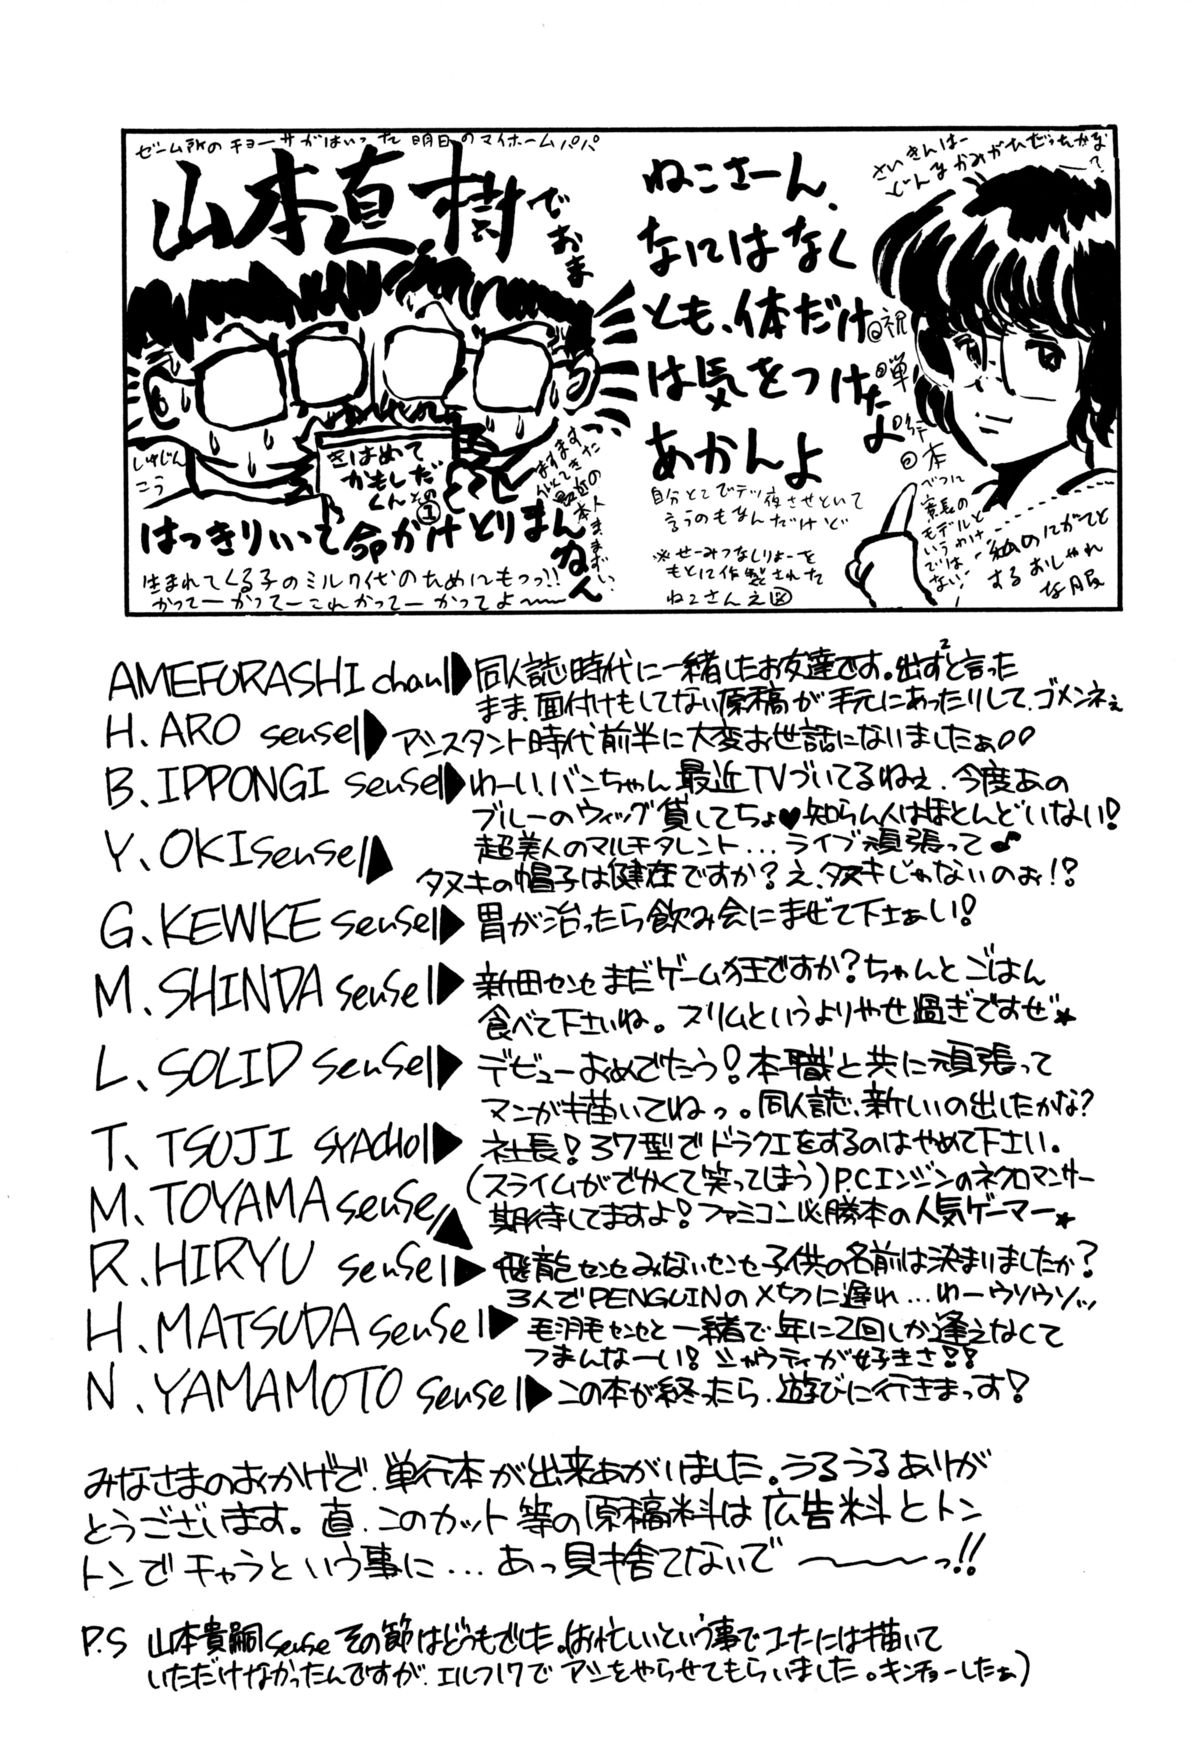 ゼーム所のチョーサがはいった明日のマイホームパパ
山本直樹でおま
きはめて
かもしだ
くんその①
しげじん
こう
はっきりいって命がけとりまんねん
生まれてくる子のミルク代のためにもつっ!!
かってーかってーこれかってーかってよ〜〜
ねこさーん、
なにはなく
とも、体だけ
は気をつけたよ
あかんよ
祝単行本
自分とこでテツ夜させといて
言うのもなんだけど
※せーみつなしりょーを
もとに作製された
ねこさんえ図
さいきんはー
どんなかみがただったかなー?
べつに
寛長の
モデルと
いうわけ
ではない!
私のにがてと
するおしゃれ
な服
AMEFURASHI chan▶同人誌時代に一緒したお友達です。出ず²と言った
まま、面付けもしてない原稿が手元にあったりして、ゴメンネぇ
H. ARO sensei▶アシスタント時代前半に大変お世話にないましたぁ
B. IPPONGI sensei▶わーい、バンちゃん最近TVづいてるねぇ、今度あの
ブルーのウィッグ貸してちょ♥知らん人はほとんどいない!
超美人のマルチタレント...ライブ頑張って♪
Y. OKI sensei▲タヌキの帽子は健在ですか?え、タヌキじゃないのぉ!?
G. KEWKE sensei▶胃が治ったら飲み会にまぜて下せぁい!
M. SHINDA sensei▶新田センセまだゲーム狂ですか?ちゃんとごはん
食べて下さいね。スリムというよりやせ過ぎですぜ★
L. SOLID sensei▶デビューおめでたう!本職と共に頑張って
マンガも描いてねっ。同人誌、新しいの出したかな?
T. TSUJI SYACHO▶社長!37型でドラクエをするのはやめて下さい。
(スライムがでかくて笑ってしまう)P.Cエンジンのネクロマンサー
M. TOYAMA sensei▲期待してますよ!ファミコン必勝本の人気ゲーマー★
R. HIRYU sensei▶飛龍センセみないセンセ子供の名前は決まりましたか?
3人でPENGUINの〆切に遅れ...わーウソウソッ
H. MATSUDA sensei▶毛羽毛センセと一緒で年に2回しか逢えなくて
つまんなーい!シャウティが好きさ!!
N. YAMAMOTO sensei▶この本が終ったら、遊びに行きまっす!
みなさまのおかげで、単行本が出来あがいました。うるうるありが
とうございます。直、このカット等の原稿料は広告料とトン
トンでチャラという事に...あっ見捨てないで〜〜〜っ!!
P.S 山本貴嗣senseその節はどうもでした。(お忙しいという事でコーナには描いて
いただけなかったんですが、エルフ17でアシをやらせてもらいました。キンチョーしたぁ)